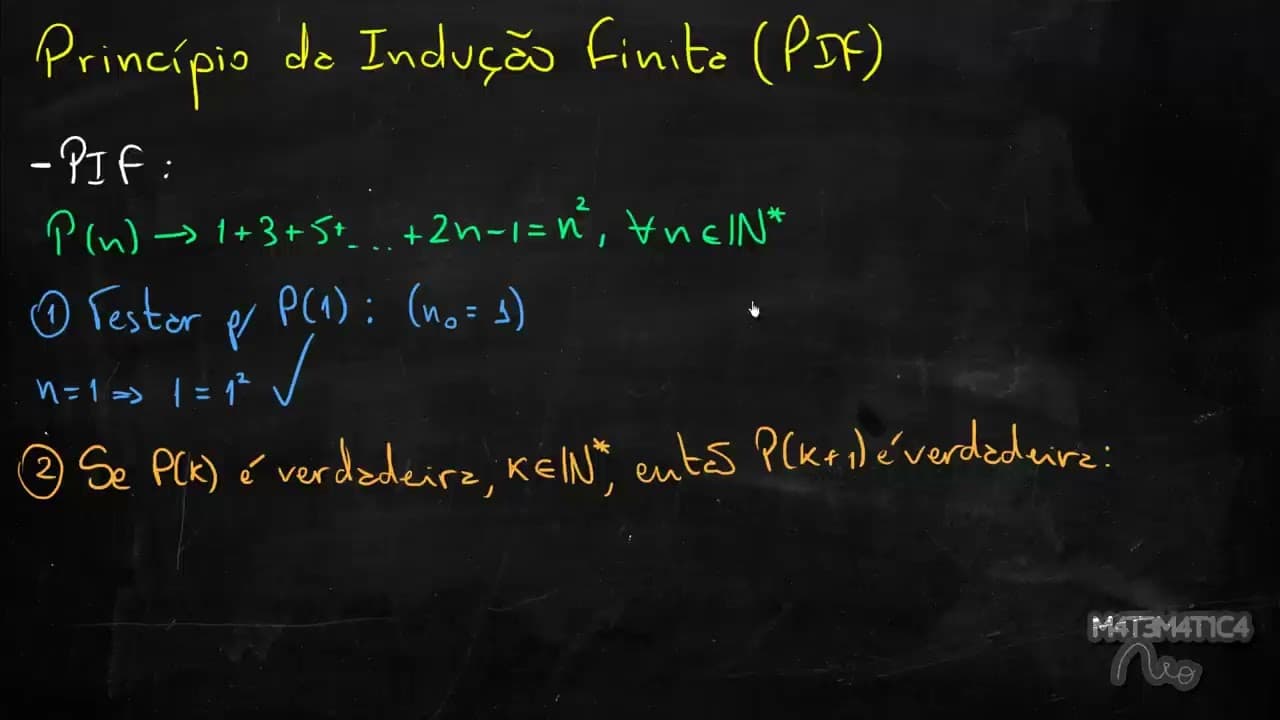 Princípio da Indução Finita (PIF)
- PIF:
P(n) → 1+3+5+...+2n-1=n², ∀n∈ℕ*
① Testar p/ P(1): (n₀=1)
n=1 ⇒ 1=1² ✓
② Se P(k) é verdadeira, k∈ℕ*, então P(k+1) é verdadeira:
M4T3M4T1C4
Rio